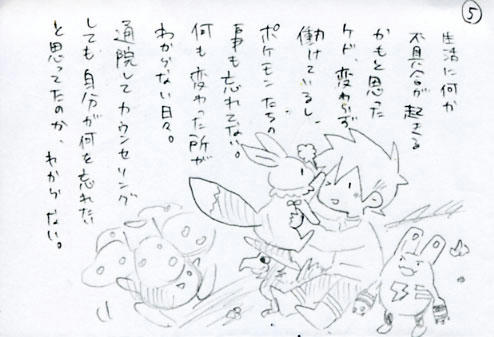 ⑤
生活に何か
不具合が起きる
かもと思った
ケド、変わらず
働けているし、
ポケモンたちの
事も忘れてない。
何も変わった所が
わからない日々。
通院してカウンセリング
しても自分が何を忘れたい
と思ってたのか、わからない。